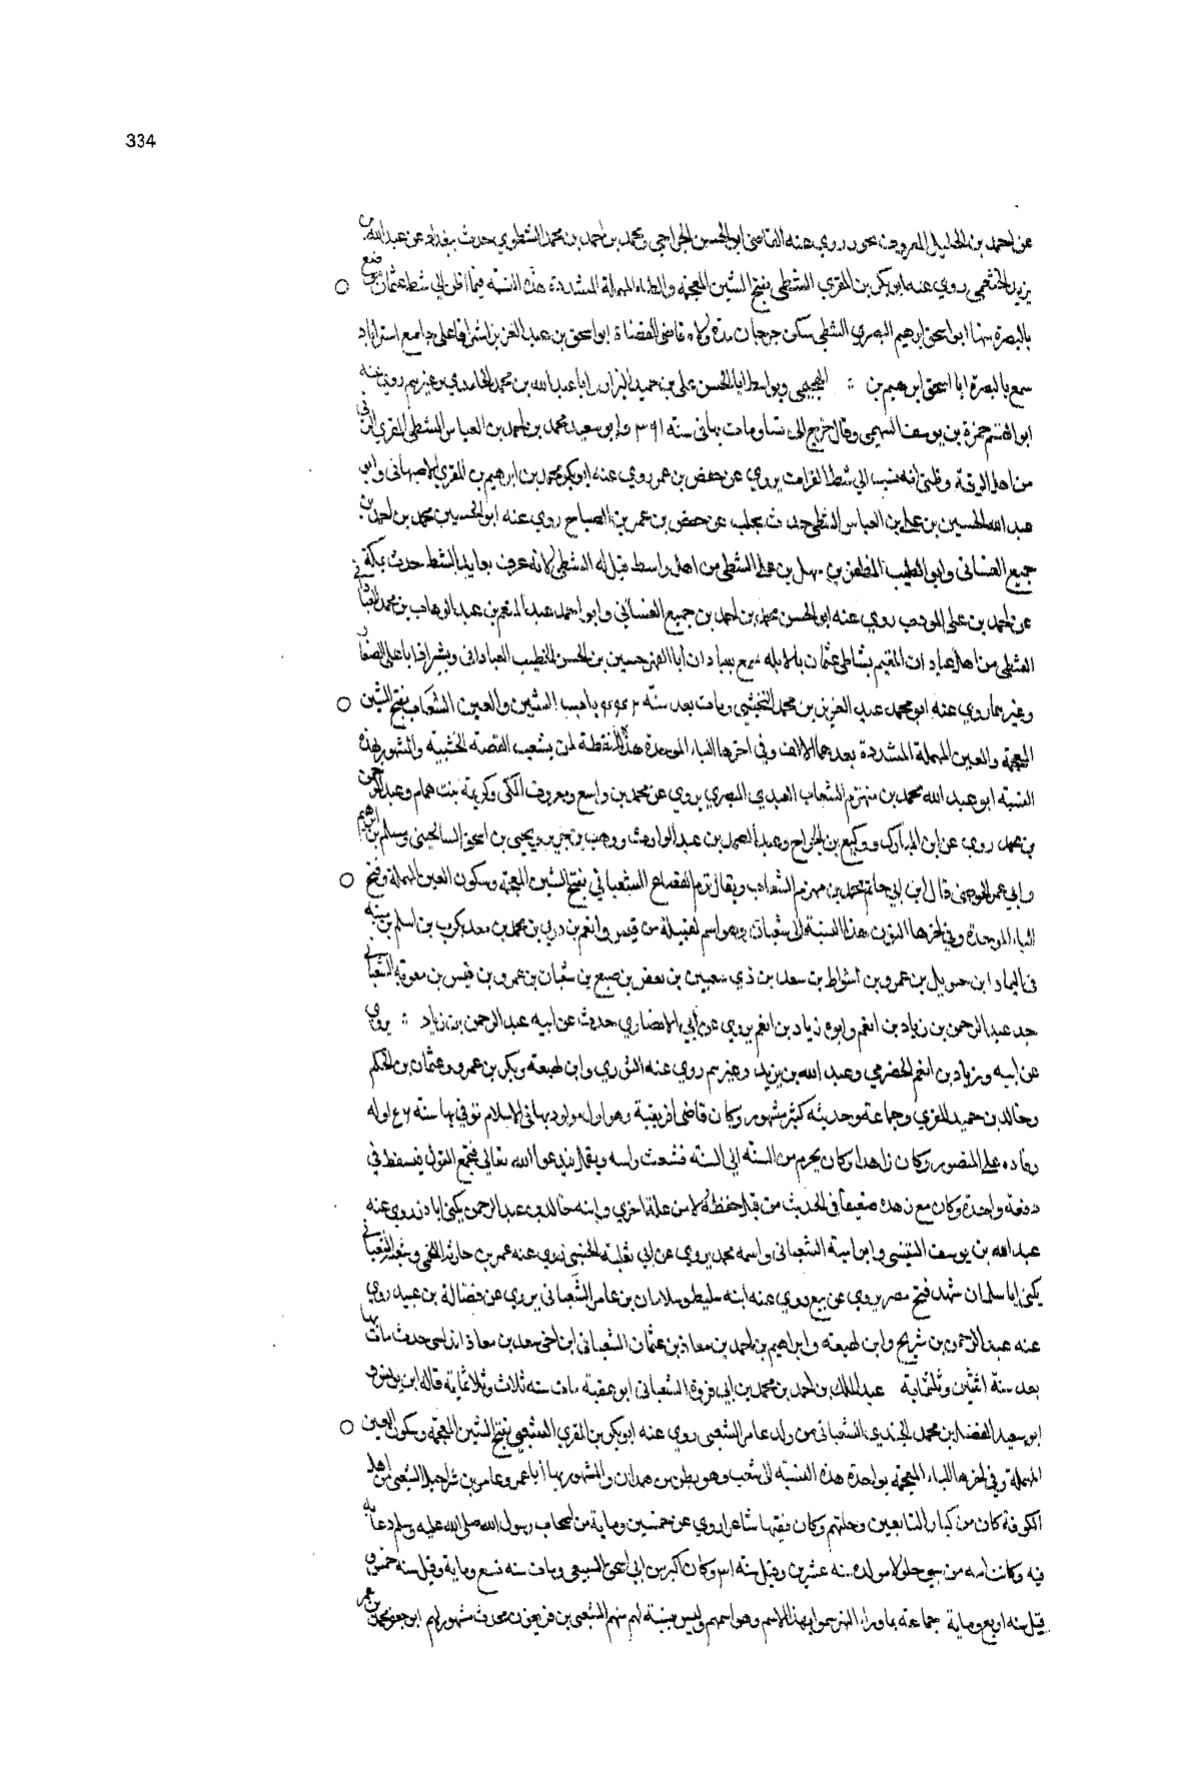 334
عن احمد بن الخليل المعروف بحور روي عنه القاضي ابو الحسن الجراحي ومحمد بن احمد بن محمد الشطوي حدث ببغداد عن عبد الله بن
يزيد الخثعمي روي عنه ابو بكر بن المقري الشطي بفتح الشين المعجمة والطاء المهملة المشددة هذه النسبة فيما اظن الي شط عثمان موضع
بالبصرة منها ابو اسحق ابرهيم البصري الشطي سكن جرجان مدة ولاه قاضي القضاة ابو اسحق بن عبد العزيز اشرافا على جامع استراباد
سمع بالبصرة ابا اسحق ابرهيم بن الهجيمي وبواسط ابا الحسن علي بن حميد البزار ابا عبد الله بن محمد الحامدي وغيرهم روي عنه
ابو القسم حمزة بن يوسف السهمي وقال خرج الى نسا ومات بها في سنة ٣٩١ وابو سعيد محمد بن احمد بن العباس الشطي المقري
من اهل الرقة وظني انه ينسب الي شط الفرات يروي عن حفص بن عمر روي عنه ابو بكر محمد بن ابرهيم بن المقري الاصبهاني وابو
عبد الله الحسين بن علي بن العباس الشطي حدث بحلب عن حفص بن عمر بن الصباح روي عنه ابو الحسين محمد بن احمد بن
جميع الغساني وابو الطيب المظفر بن سهل بن علي الشطي من اهل واسط قيل له الشطي لانه عرف بعابد الشط حدث بمكة
عن احمد بن علي المودب روي عنه ابو الحسن محمد بن احمد بن جميع الغساني وابو احمد عبد المنعم بن عبد الوهاب بن محمد
الشطي من اهل عبادان المقيم بشاطي عثمان بالابلة سمع بعبادان ابا العز حسين بن الحسن الخطيب العباداني وبشيراز ابا علي الصفار
وغيرهما روي عنه ابو محمد عبد العزيز بن محمد النخشبي ومات بعد سنة باب الشين والعين الشعاب بفتح الشين
المعجمة والعين المهملة المشددة بعدهما الالف وفي اخرها الباء الموحدة هذه اللفظة لمن يشعب القصعة الخشبية والمشهور بهذه
النسبة ابو عبد الله محمد بن مهزم الشعاب العبدي البصري يروي عن محمد بن واسع ومعروف المكي وكريمة بنت همام وعبد الرحمن
بن محمد روي عن ابن المبارك ووكيع بن الجراح وعبد الصمد بن عبد الوارث ووهب بن جرير ويحيى بن اسحق السالحيني ومسلم بن ابرهيم
وابي عمر الحوضي قال ابن ابي حاتم محمد بن مهزم الشعاب ويقال نرم القصاع الشعباني بفتح الشين المعجمة وسكون العين المهملة وفتح
الباء الموحدة وفي اخرها النون هذا النسبة الى شعبان وهو اسم لقبيلة من قيس وانعم بن دري بن محمد بن معديكرب بن اسلم بن منبه
بن عمرو بن اشواط بن سعد بن ذي شعبين بن يعفر بن ضبع بن شعبان بن عمرو بن قيس بن معوية الشعباني
جد عبد الرحمن بن زياد بن انعم وابوه زياد بن انعم يروي عن ابي الانصاري حدث عن ابيه عبد الرحمن بن زياد يروي
عن ابيه وزياد بن نعم الحضرمي وعبد الله بن يزيد وغيرهم روي عنه الثوري وابن لهيعة وبكر بن عمرو وعثمان بن الحكم
وخالد بن حميد المهري وجماعة وحديثه كثير مشهور وكان قاضي افريقية وهو اول مولود بها في الاسلام توفي بها سنة اوله
وفادة على المنصور وكان زاهدا وكان يحرم من السنة الى السنة فشعث راسه ويقال
دفعة واحدة وكان مع زهده ضعيفا في الحديث من قبل حفظه لا من علة اخري وابنه خالد بن عبد الرحمن يكنى ابا روي عنه
عبد الله بن يوسف التنيسي وابو امية الشعباني واسمه محمد يروي عن ابي ثعلبة الخشني روي عنه عمر بن جارية اللخمي الشعباني
يكنى ابا سلمان شهد فتح مصر يروي عن روي عنه ابنه سليط وسلامان بن عامر الشعباني يروي عن فضالة بن عبيد روي
عنه عبد الرحمن بن شريح وابن لهيعة وابراهيم بن احمد بن معاذ بن عثمان الشعباني ابن اخي سعد بن معاذ اندلسي حدث مات بها
بعد سنة اثنين وثلثماية عبد الملك بن احمد بن محمد بن ابي فروة الشعباني ابو عقبة مات سنة ثلاث وثلاثماية قاله ابن يونس و
ابو سعيد المفضل بن محمد الجندي الشعباني من ولد عامر الشعبي روي عنه ابو بكر بن المقري الشعبي بفتح الشين المعجمة وسكون العين
المهملة وفي اخرها الباء المعجمة بواحدة هذه النسبة الى شعب وهو بطن من همدان والمشهور بها ابا عمرو عامر بن شراحيل الشعبي من اهل
الكوفة كان من كبار التابعين وجلتهم وكان فقيها شاعرا روي عن خمسين وماية من اصحاب رسول الله صلى الله عليه وسلم
فيه وكانت امه من سبي جلولا مولده سنة عشرين وقيل سنة ٣١ وكان اكبر من ابي اسحق السبيعي ومات سنة تسع وماية وقيل سنة خمس و
قيل سنة اربع وماية جماعة بماوراء النهر سموا بهذا الاسم وهو اسمهم وليس بنسبة لهم منهم الشعبي بن فريغون محدث مشهور لهم ابو جعفر محمد بن عمر